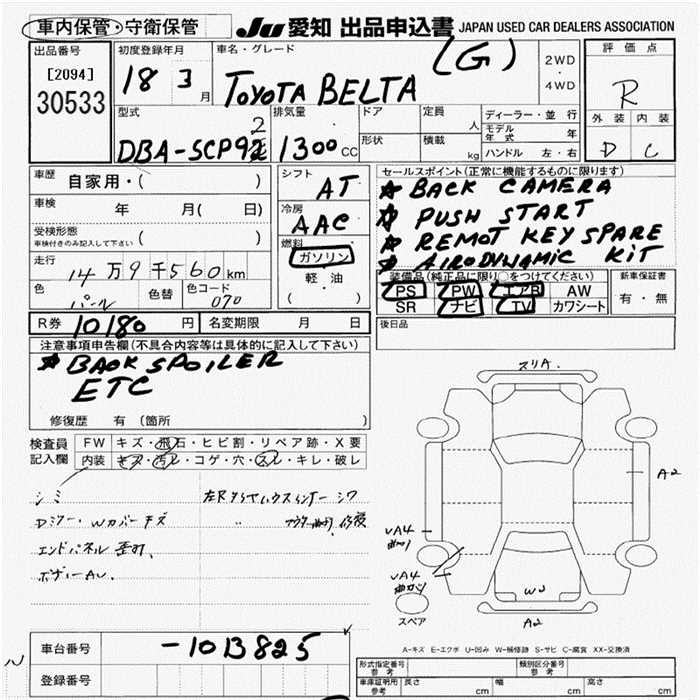 車内保管・守衛保管 Ju 愛知 出品申込書 JAPAN USED CAR DEALERS ASSOCIATION
出品番号 初度登録年月 車名・グレード 評価点
[2094] 30533 18 3 月 TOYOTA BELTA (G) 2WD・4WD R
外装 内装
D C
型式 排気量 ドア 定員 人 ディーラー・並行
DBA-SCP92 1300 CC 形状 積載 kg モデル年式 年
ハンドル 左・右
車歴 自家用・( )
シフト AT
セールスポイント(正常に機能するものに限ります)
★ BACK CAMERA
★ PUSH START
★ REMOT KEY SPARE
★ AIRODYNAMIC KIT
車検 年 月( 日)
冷房 AAC
受検形態
車検付きのみ記入して下さい ( )
燃料 ガソリン
軽・油
( )
走行 14万9千560km
装備品(純正品に限り○をつけてください) 新車保証書
PS PW エアB AW 有・無
SR ナビ TV カワシート
色 パール 色替 色コード 070
R券 10180 円 名変期限 月 日
後日品
注意事項申告欄(不具合内容等は具体的に記入して下さい)
★ BACK SPOILER
ETC
修復歴 有 (箇所 )
検査員記入欄 FW キズ・飛石・ヒビ割・リペア跡・X要
内装 キズ・汚レ・コゲ・穴・スレ・キレ・破レ
シミ
Dミラー・Wカバーキズ
エンドパネル
スリA
A2
UA4
UA4
W2
A2
スペア
A-キズ E-エクボ U-凹み W-補修跡 S-サビ C-腐食 XX-交換済
車台番号 -1013825
登録番号
形式指定番号 参考 類別区分番号 参考
車庫証明用 参考 長さ cm 幅 cm 高さ cm